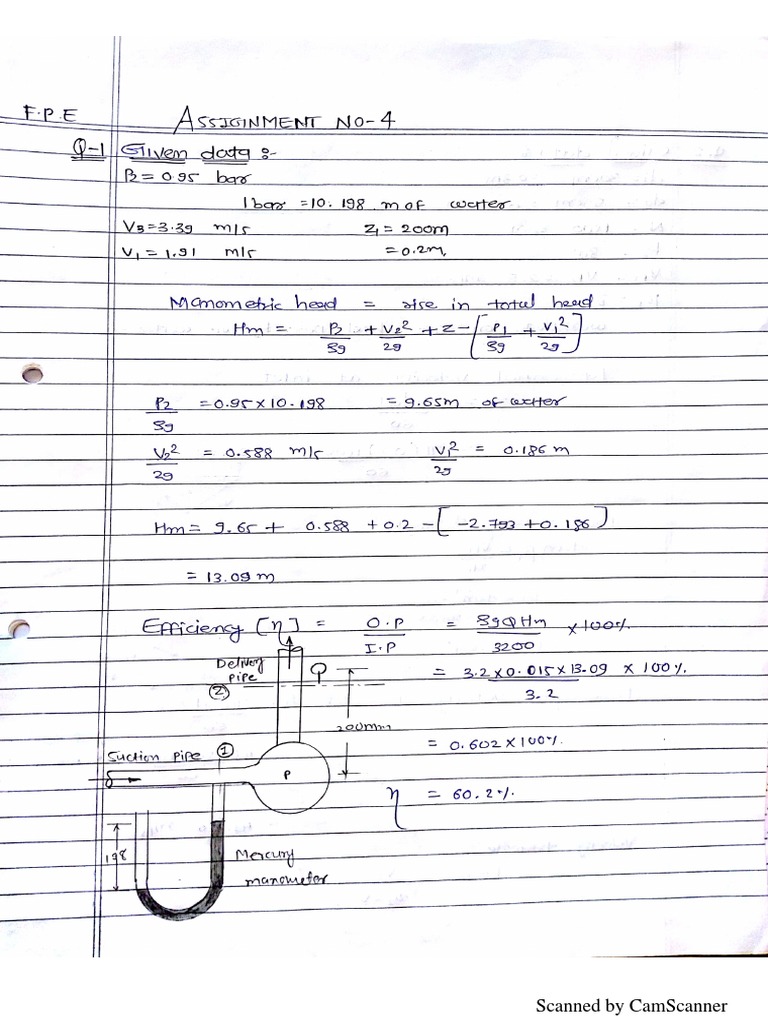 F.P.E
ASSIGNMENT NO-4
Q-1 Given data :-
P2 = 0.95 bar
1 bar = 10.198 m of water
V3 = 3.39 m/s Z1 = 200m
V1 = 1.91 m/s = 0.2m,
Manometric head = rise in total head
Hm = P2/ρg + V2²/2g + z - [P1/ρg + V1²/2g]
P2/ρg = 0.95 x 10.198 = 9.65m of water
V2²/2g = 0.588 m/s V1²/2g = 0.186 m
Hm = 9.65 + 0.588 + 0.2 - [-2.793 + 0.186]
= 13.09 m
Efficiency [η] = O.P/I.P = ρgQHm/3200 x 100%
Delivery pipe
(2)
= 3.2 x 0.015 x 13.09/3.2 x 100%
200mm
= 0.602 x 100%
Suction pipe (1)
P
η = 60.2%
198
Mercury
manometer
Scanned by CamScanner